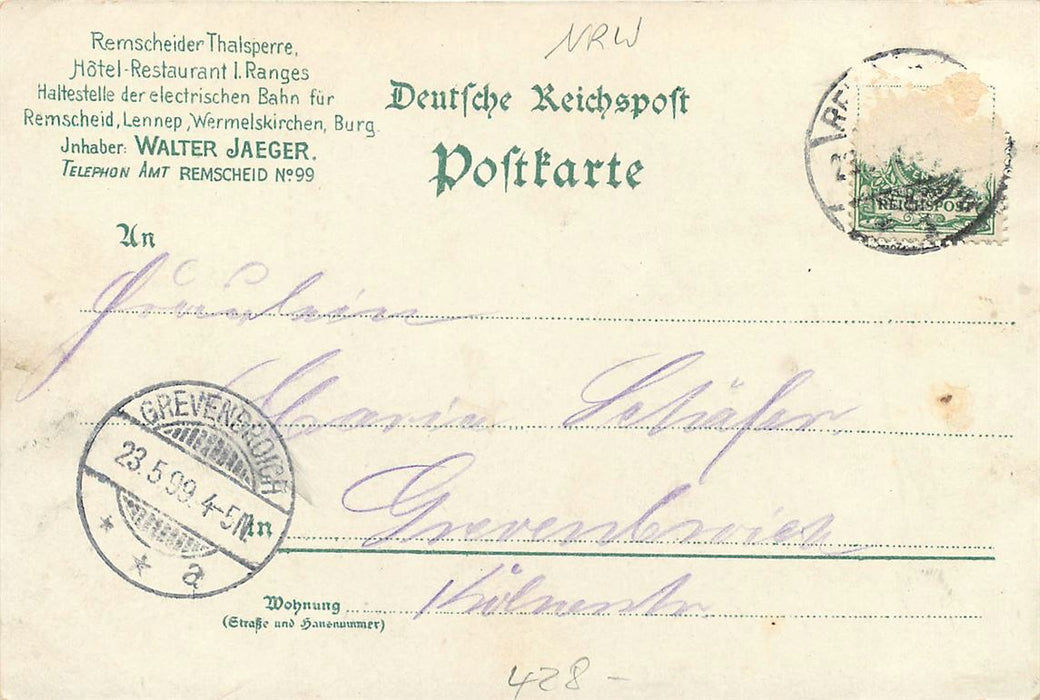 NRW
Remscheider Thalsperre,
Hôtel-Restaurant I. Ranges
Haltestelle der electrischen Bahn für
Remscheid, Lennep, Wermelskirchen, Burg.
Jnhaber: WALTER JAEGER.
TELEPHON AMT REMSCHEID Nº 99
Deutsche Reichspost
Postkarte
RE
23
REICHSPOST
An
Fräulein
Maria Schäfer
GREVENBROICH
23.5.99. 4-5N
* * a
in
Grevenbroich
Wohnung Kölnerstr
(Straße und Hausnummer)
428-